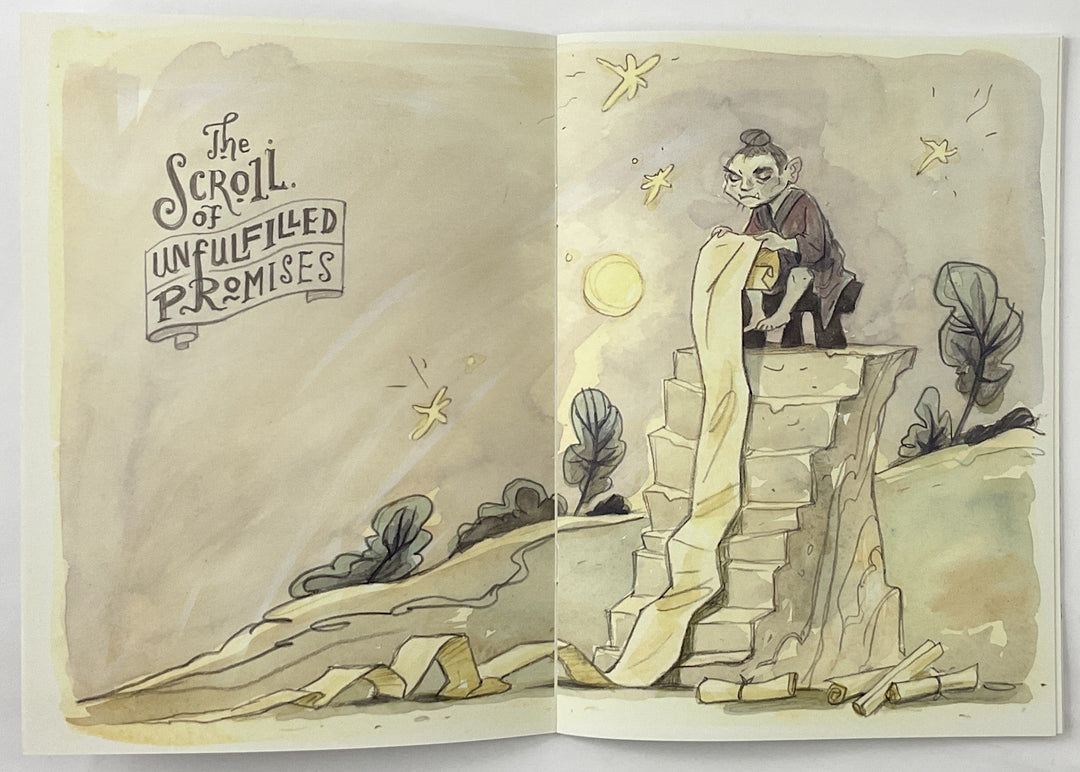 The
SCROLL.
OF
UNFULFILLED
PROMISES